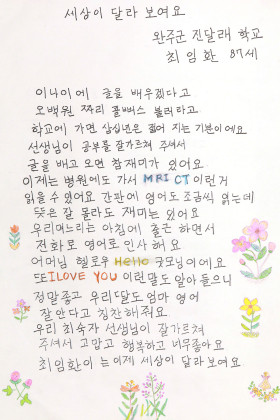 세상이 달라 보여요
완주군 진달래 학교
최임환 87세
이나이에 글을 배우겠다고
오백원 짜리 콜뻐스 불러타고
학교에 가면 삼십년은 젊어 지는 기분이에요
선생님이 공부를 잘가르쳐 주셔서
글을 배고 오면 참재미가 있어요
이제는 병원에도 가서 MRI CT 이런거
읽을 수 있어요 간판에 영어도 조금씩 읽는데
뜻은 잘 몰라도 재미는 있어요
우리며느리는 아침에 출근 하면서
전화로 영어로 인사 해요
어머님 헬로우 Hello 굿모닝이에요
또 I LOVE YOU 이런말도 알아 들으니
정말좋고 우리딸도 엄마 영어
잘안다고 칭찬해줘요
우리 최숙자 선생님이 잘가르쳐
주셔서 고맙고 행복하고 너무좋아요
최임환이 는 이제 세상이 달라 보여요